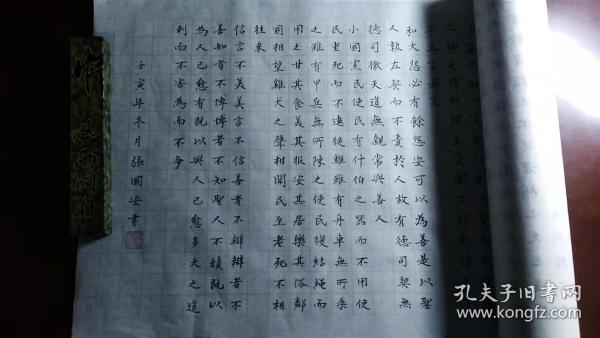 和大怨必有餘怨安可以為善是以聖
人執左契而不責於人故有德司契無
德司徹天道無親常與善人
小國寡民使民有什伯之器而不用使
民重死而不遠徙雖雖有舟車無所乘
之雖有甲兵無所陳之使民復結繩而
用之甘其食美其服安其居樂其俗鄰
國相望雞犬之聲相聞民至老死不相
往來
信言不美美言不信善者不辯辯者不
善知者不博博者不知聖人不積既以
為人己愈有既以與人己愈多天之道
利而不害為而不爭
壬寅年冬月張國安書
孔夫子旧书网
www.kongfz.com